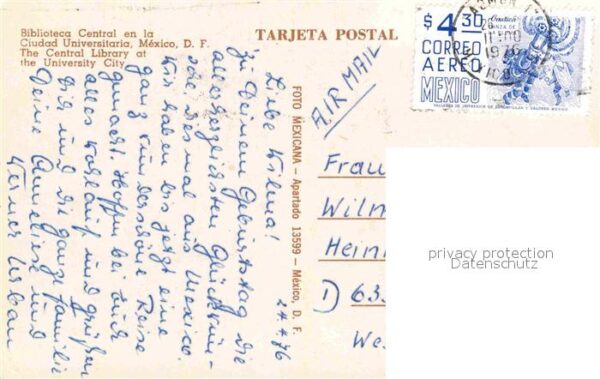 Biblioteca Central en la
Ciudad Universitaria, México, D. F.
The Central Library at
the University City
TARJETA POSTAL
$4.30
CORREO
AEREO
MEXICO
1976
AIR MAIL
FOTO MEXICANA — Apartado 13599 — México, D. F.
24.4.76
Liebe Wilma!
Zu Deinem Geburtstag die
allerherzlichsten Glückwün-
sche. Diesmal aus Mexico.
Wir haben bis jetzt eine
ganz wunderschöne Reise
gemacht. Hoffen bei Euch
alles wohlauf und grüßen
Dich und die ganze Familie
Deine Anneliese und
Werner Urban
Frau
Wilm
Heinr
1) 633
We
privacy protection
Datenschutz